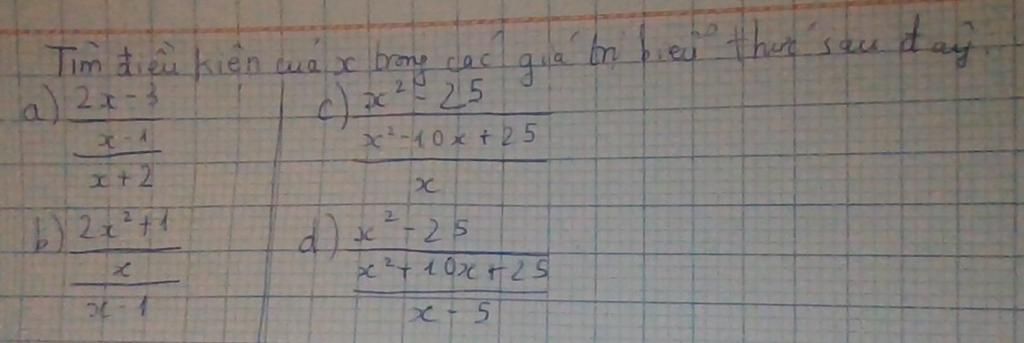 Tìm điều kiện của x trong các giá trị biểu thức sau đây.
a) 2x-3
x-1
x+2
c) x²-25
x²-10x+25
x
b) 2x²+1
x
x-1
d) x²-25
x²+10x+25
x-5